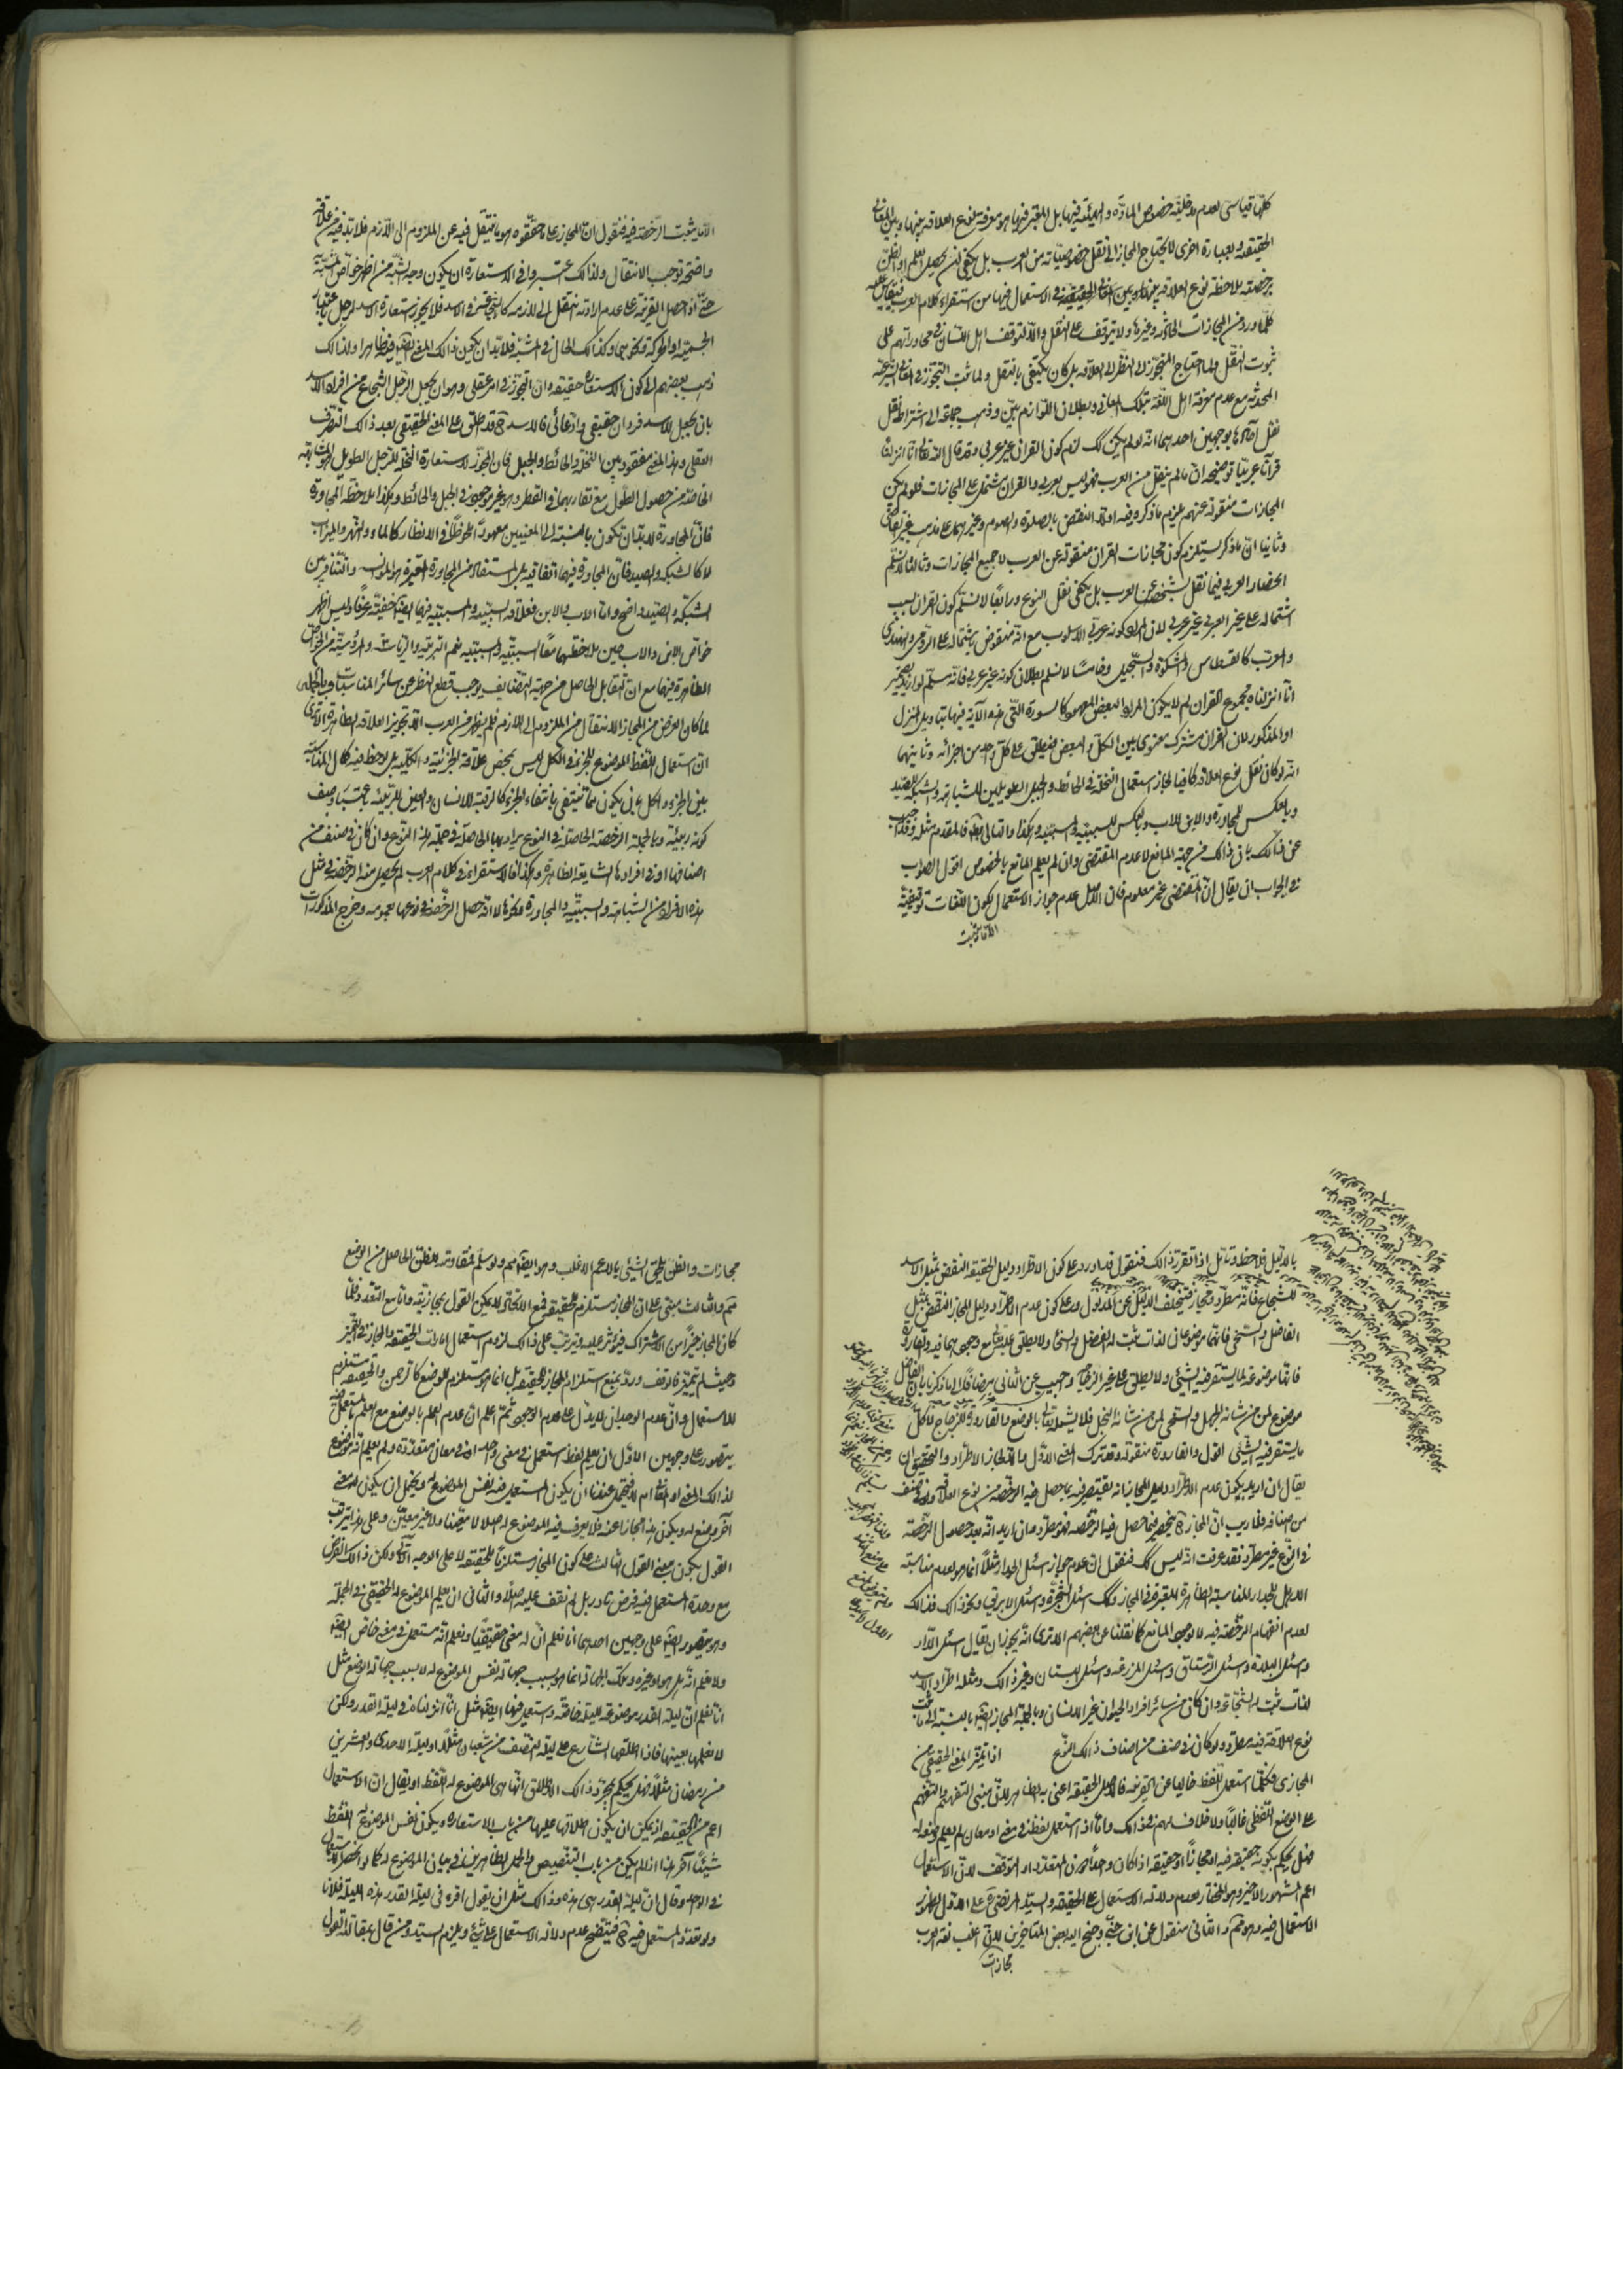 كلها قياسى لعدم مدخلية خصوص المادة والهيئة فيها بل المعتبر فيها هو معرفة نوع العلاقة بينها وبين المعانى
الحقيقية وبعبارة اخرى لا يحتاج المجاز الى نقل خصوصياته من العرب بل يكفى ان يحصل العلم او الظن
برخصته بملاحظة نوع العلاقة بينها وبين المعانى الحقيقية فى الاستعمال فيها من استقراء كلام العرب فيقاس عليه
كلما ورد من المجازات الحادثة وغيرها ولا يتوقف على النقل والا لتوقف اهل اللسان فى محاوراتهم على
ثبوت النقل ولما احتاج المتجوز الى النظر الى العلاقة بل كان يكتفى بالنقل ولما ثبت التجوز فى المعانى الشرعية
المحدثة مع عدم معرفة اهل اللغة بتلك المعانى وبطلان اللوازم بين وذهب جماعة الى اشتراط نقل
نقل آحادها بوجهين احدهما انه لو لم يكن كك لزم كون القران غير عربى وقد قال الله تعالى انا انزلناه
قرآنا عربيا توضيحه ان ما لم ينقل من العرب فهو ليس بعربى والقران مشتمل على المجازات فلو لم يكن
المجازات منقولة عنهم يلزم ما ذكر وفيه اولا النقض بالصلوة والصوم وغيرهما على مذهب غير القاضى
وثانيا ان ما ذكر يستلزم كون مجازات القران منقولة عن العرب لا جميع المجازات وثالثا لا نسلم
انحصار العربى فيما نقل بشخصه عن العرب بل يكفى نقل النوع ورابعا لا نسلم كون القران بسبب
اشتماله على غير العربى غير عربى لان المراد كونه عربى الاسلوب مع انه منقوض باشتماله على الرومى والهندى
والمعرب كالقسطاس والمشكوة والسجيل وخامسا لا نسلم بطلان كونه غير عربى فانه مسلم لو اريد بضمير
انا انزلناه مجموع القران لم لا يكون المراد البعض المعهود كالسورة التى هذه الآية فيها بتاويل المنزل
او المذكور لان القران مشترك معنوى بين الكل والبعض فيطلق على كل واحد من اجزائه وثانيهما
انه لو كان نقل نوع العلاقة كافيا لجاز استعمال النخلة فى الحائط والجبل الطويلين للشباهة والشبكة للصيد
وبالعكس للمجاورة والابن للاب وبالعكس للسببية والمسببية وهكذا والتالى بط فالمقدم مثله وقد اجيب
عن ذلك بان ذالك من جهة المانع لا عدم المقتضى وان لم يعلم المانع بالخصوص اقول الصواب
فى الجواب ان يقال ان المقتضى غير معلوم فان الاصل عدم جواز الاستعمال لكون اللغات توقيفية
الا ما ثبت
الا ما يثبت الرخصة فيه فنقول ان المجاز على ما حققوه هو ما ينتقل فيه عن الملزوم الى اللازم فلا بد فيه من علاقة
واضحة توجب الانتقال ولذالك اعتبروا فى الاستعارة ان يكون وجه الشبه من اظهر خواص المشبه به
حتى اذا حصل القرينة على عدم ارادته انتقل الى لازمه كالشجاعة فى الاسد فلا يجوز استعارة الاسد لرجل باعتبار
الجسمية او الحركة ونحوهما وكذالك الحال فى المشبه فلا بد ان يكون ذالك المعنى ايضا فيه ظاهرا ولذالك
ذهب بعضهم الى كون الاستعارة حقيقة وان التجوز فى امر عقلى وهو ان يجعل الرجل الشجاع من افراد الاسد
بان يجعل للاسد فردان حقيقى وادعائى فالاسد ح قد اطلق على المعنى الحقيقى بعد ذالك التصرف
العقلى وهذا المعنى مفقود بين النخلة والحائط والجبل فان المجوز لاستعارة النخلة للرجل الطويل هو المشابهة
الخاصة من حصول الطول مع تقاربهما فى القطر وهو غير موجود فى الجبل والحائط وهكذا ملاحظة المجاورة
فان المجاورة لا بد ان تكون بالنسبة الى المعنيين معهودة ملحوظا فى الانظار كالماء والنهر والميزاب
لا كالشبكة والصيد فان المجاورة فيهما اتفاقية بل المستفاد من المجاورة المعتبرة هو المؤانسة والتنافر بين
الشبكة والصيد واضح واما الاب والابن فعلاقة السببية والمسببية فيهما ايضا خفية عرفا وليس اظهر
خواص الابن والاب حين ملاحظتهما معا السببية والمسببية نعم التربية والرياسة والمرؤسية من الخواص
الظاهرة فيهما مع ان التقابل الحاصل من جهة التضايف يوجب قطع النظر عن سائر المناسبات وبالجملة
لما كان الغرض من المجاز الانتقال من الملزوم الى اللازم فلم يظهر من العرب الا تجويز العلاقة الظاهرة الا ترى
ان استعمال اللفظ الموضوع للجزء فى الكل ليس بمحض علاقة الجزئية والكلية بل لوحظ فيه كمال المناسبة
بين الجزء والكل بان يكون مما ينتفى بانتفاء الجزء كالرقبة للانسان والعين للربيئة باعتبار وصف
كونه ربيئة وبالجملة الرخصة الحاصلة فى النوع يراد بها الحاصلة فى جملة هذا النوع وان كان فى صنف من
اصنافها او فى افرادها الشايعة الظاهرة وهكذا فالاستقراء فى كلام العرب لم يحصل منه الرخصة فى مثل
هذه الافراد من الشباهة والسببية والمجاورة ونحوها لا انه حصل الرخصة فى نوعها بعمومه وخرج المذكورات
بالدليل فلاحظ وتامل اذا تقرر ذالك فنقول قد اورد على كون الاطراد دليل الحقيقة النقض بمثل الاسد
للشجاع فانه مطرد ومجاز فيتخلف الدليل عن المدلول وعلى كون عدم الاطراد دليل المجاز النقض بمثل
الفاضل والسخى فانهما موضوعان لذات ثبت له الفضل والسخاء ولا يطلق عليه تعالى مع وجودهما فيه والقارورة
فانها موضوعة لما يستقر فيه الشئ ولا يطلق على غير الزجاج واجيب عن الثانى
موضوع لمن من شانه الجهل والسخى لمن من شانه البخل فلا يشمله تعالى بالوضع والقارورة للزجاج لا كل
ما يستقر فيه الشئ اقول والقارورة منقولة وقد ترك المعنى الاول والا لجاز الاطراد والتحقيق ان
يقال ان اريد بكون عدم الاطراد دليل المجاز انه يقتصر فيه بما حصل فيه الرخصة من نوع العلاقة ولو فى صنف
من اصنافه فلا ريب ان المجاز ح ينحصر فيما حصل فيه الرخصة فهو مطرد وان اريد انه بعد حصول الرخصة
فى النوع غير مطرد فقد عرفت انه ليس كك فنقول ان عدم جواز اسئل الجدار مثلا انما هو لعدم مناسبة
الاهل للجدار للمناسبة الظاهرة المعتبرة فى المجاز وكك اسئل الشجرة واسئل الابريق ونحو ذالك فذالك
لعدم انفهام الرخصة فيه لا لوجود المانع كما نقلنا عن بعضهم الا ترى انه يجوز ان يقال اسئل الدار
واسئل البلدة واسئل الرستاق واسئل المزرعة واسئل البستان وغير ذالك ومثله اطراد الاسد
لذات ثبت له الشجاعة وان كان من سائر افراد الحيوان غير الانسان وبالجملة المجاز ايضا بالنسبة الى ما ثبت
نوع العلاقة فيه مطرد ولو كان فى صنف من اصناف ذالك النوع اذا تميز المعنى الحقيقى من
المجازى فكلما استعمل اللفظ خاليا عن القرينة فالاصل الحقيقة اعنى به الظاهر لان مبنى التفهيم والتفهم
على الوضع اللفظى غالبا ولا خلاف لهم فى ذالك واما اذا استعمل لفظ فى معنى او معان لم يعلم وضعه له
فهل يحكم بكونه حقيقة فيه او مجازا او حقيقة اذا كان واحدا دون المتعدد او التوقف لان الاستعمال
اعم المشهور الاخير وهو المختار لعدم دلالة الاستعمال على الحقيقة والسيد المرتضى على الاول لظهور
الاستعمال فيه وهو ممنوع والثانى منقول عن ابن جنى وجنح اليه بعض المتاخرين لان اغلب لغة العرب
مجازات
مجازات والظن يلحق الشئ بالاعم الاغلب وهو ايضا ممنوع ولو سلم فمقاومته للظن الحاصل من الوضع
مم والثالث مبنى على ان المجاز مستلزم للحقيقة فمع الاتحاد لا يمكن القول بمجازيته واما مع التعدد فلما
كان المجاز خيرا من الاشتراك فيؤثر عليه ويترتب على ذالك لزوم استعمال امارات الحقيقة والمجاز فى التميز
وحيث لم يتميز فالوقف ورد بمنع استلزام المجاز للحقيقة بل انما هو مستلزم للوضع كالرحمن والحقيقة مستلزم
للاستعمال وان عدم الوجدان لا يدل على عدم الوجود ثم اعلم ان عدم العلم بالوضع مع العلم بالمستعمل فيه
يتصور على وجهين الاول ان يعلم لفظ استعمل فى معنى واحد او فى معان متعددة ولم يعلم انه موضوع
لذالك المعنى او المعانى ام لا فيحتمل عندنا ان يكون المستعمل فيه نفس الموضوع له ويحتمل ان يكون له معنى
آخر وضع له ويكون هذا مجازا عنه فلا يعرف فيه الموضوع له اصلا لا معينا ولا غير معين وعلى هذا يترتب
القول بكون مبنى القول الثالث على كون المجاز مستلزما للحقيقة لا على الوجه الآتى ولكن ذالك الفرض
مع وحدة المستعمل فيه فرض نادر بل لم نقف عليه اصلا والثانى ان يعلم الموضوع له الحقيقى فى الجملة
وهو يتصور ايضا على وجهين احدهما انا نعلم ان له معنى حقيقيا ونعلم انه مستعمل فى معنى خاص ايضا
ولا نعلم انه هل هو او غيره وذلك الجهالة انما هو بسبب جهالة نفس الموضوع له لا بسبب جهالة الوضع مثل
انا نعلم ان ليلة القدر موضوعة لليلة خاصة واستعمل فيها ايضا مثل انا انزلناه فى ليلة القدر ولكن
لا نعلمها بعينها فاذا اطلقها الشارع على ليلة النصف من شعبان مثلا او ليلة الاحدى والعشرين
من رمضان مثلا فهل يحكم بمجرد ذالك الاطلاق انها هى الموضوع له اللفظ او يقال ان الاستعمال
اعم من الحقيقة اذ يمكن ان يكون اطلاقها عليها من باب الاستعارة ويكون نفس الموضوع له اللفظ
شيئا آخر هذا اذا لم يكن من باب التنصيص والحمل الظاهر فى بيان الموضوع له كما لو انحصر الاستعمال
فى الواحد وقال ان ليلة القدر هى هذه وذالك مثل ان يقول اقرء فى ليلة القدر هذه الليلة فلانا
ولو تعدد المستعمل فيه ح فيتضح عدم دلالة الاستعمال على شئ ويلزم السيد ومن قال بمقالته القول